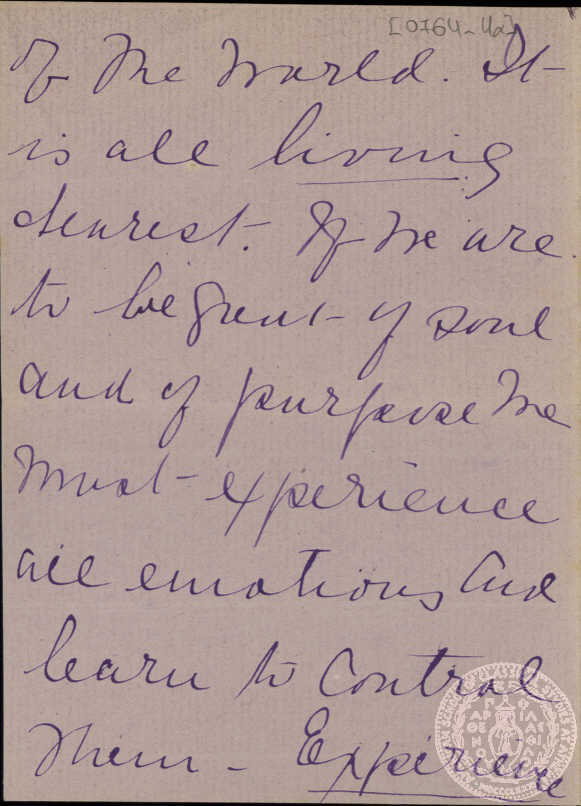 [0764-4a]
of the World. It
is all living
dearest. If we are
to be great of soul
and of purpose we
must experience
all emotions and
learn to control
them - Experience